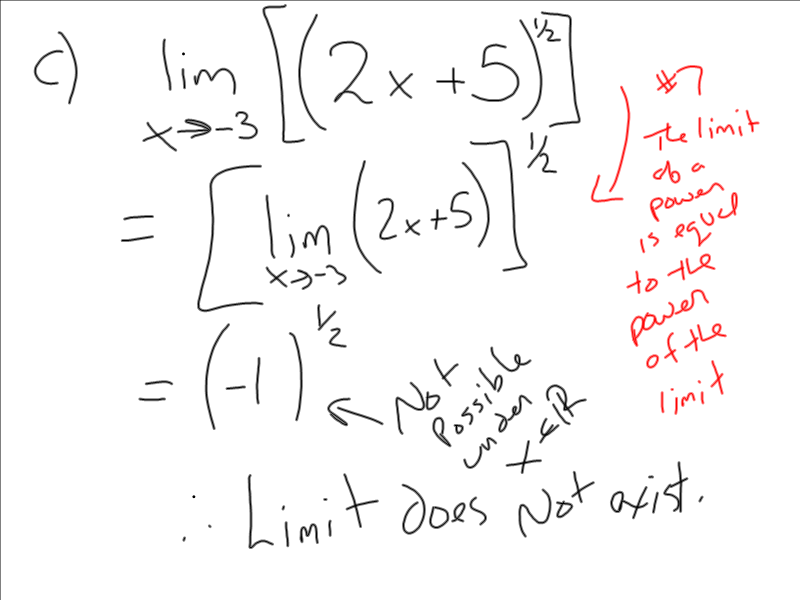 c) lim x→-3 [(2x+5)^1/2]
= [lim x→-3 (2x+5)]^1/2
= (-1)^1/2
Not
Possible
under
x∈ℝ
∴ Limit does Not exist.
#7
The limit
of a
power
is equal
to the
power
of the
limit